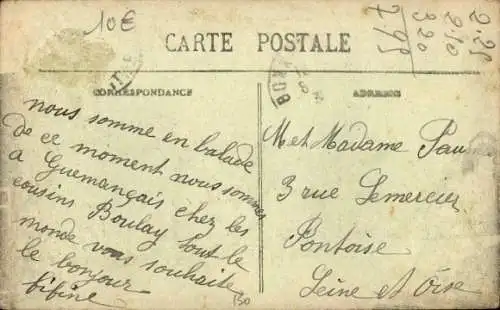 10€
2.25
2.10
3.20
7.55
CARTE POSTALE
CORRESPONDANCE
ADRESSE
nous somme en balade
de ce moment nous sommes
a Guemançais chez les
cousins Boulay tout le
monde vous souhaite
le bonjour
fifine
M et Madame Pau
3 rue Lemercier
Pontoise
Seine et Oise
150